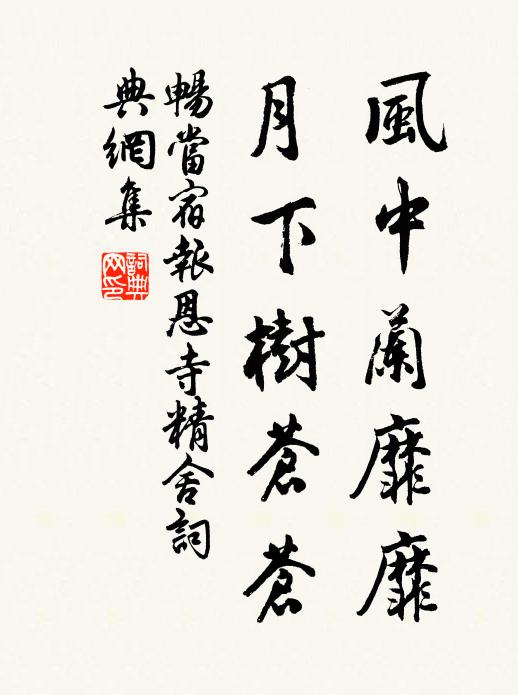 風中蘭靡靡
月下樹蒼蒼
暢當宿報恩寺精舍詞
典網集
詞典
网印